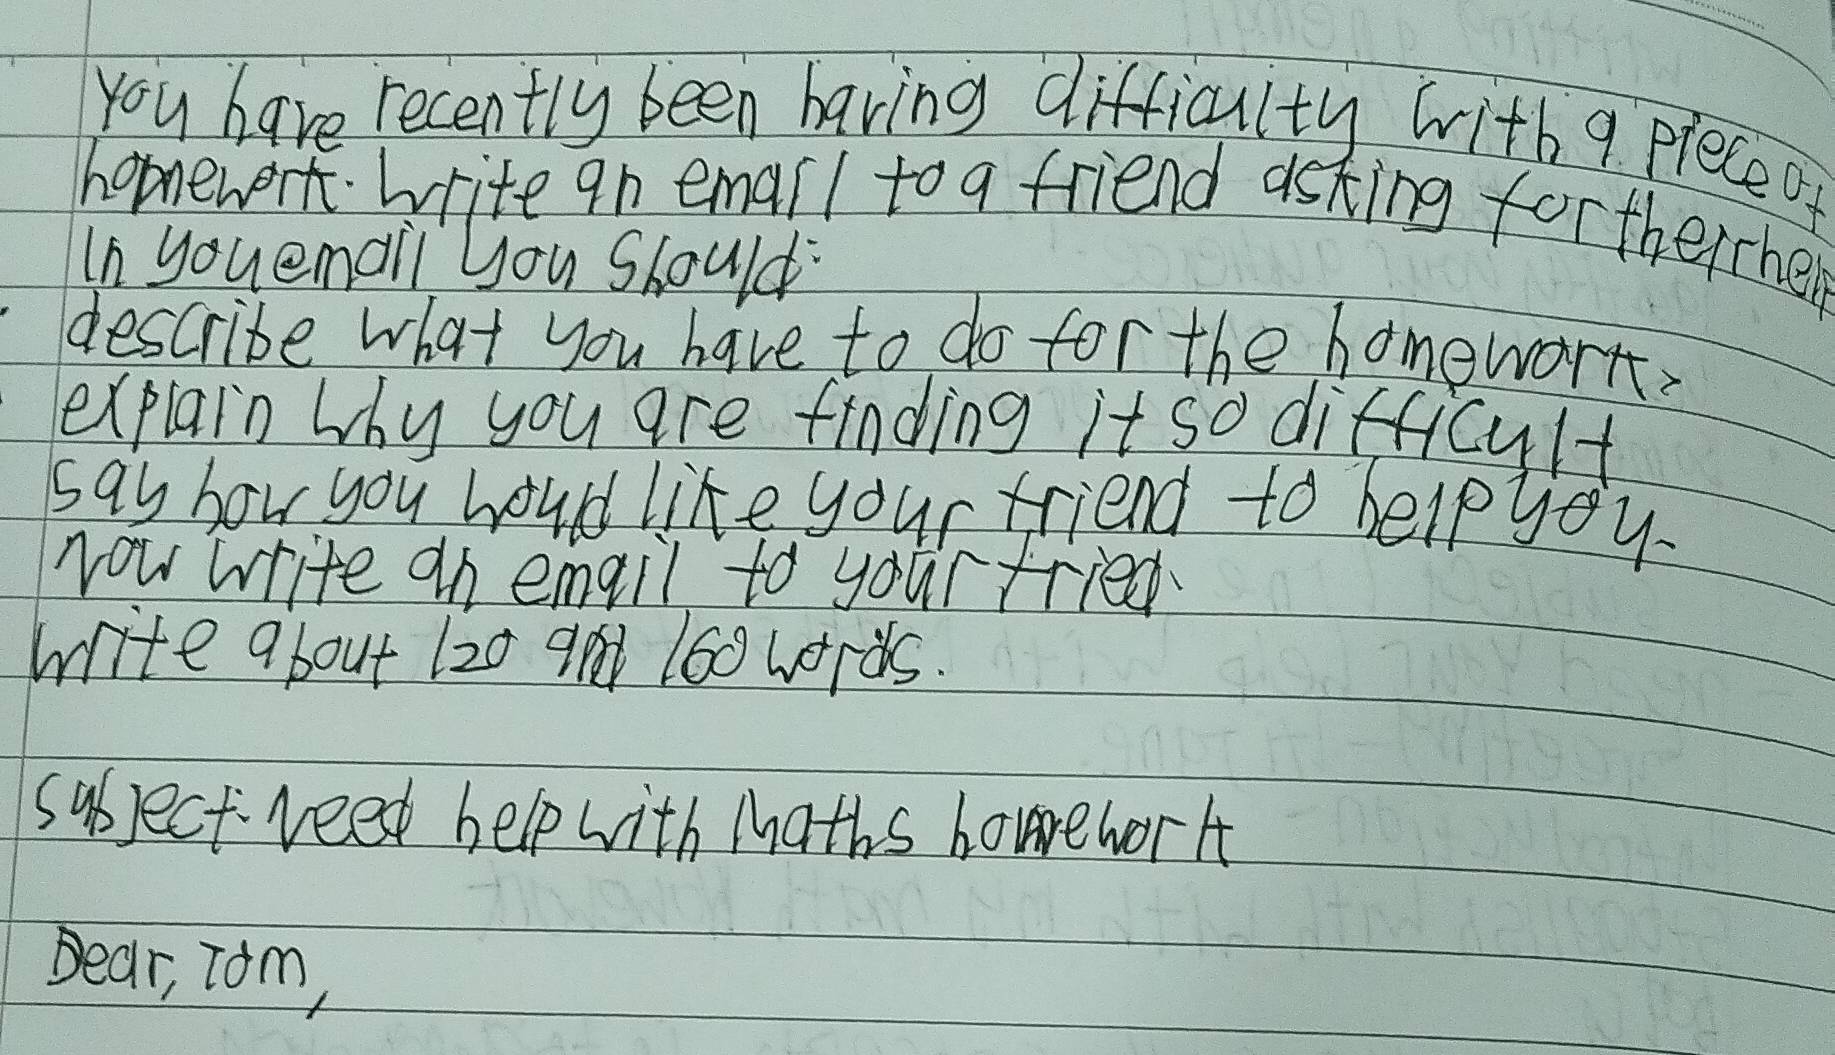 You have recently been having difficulty with a piece of
homework. Write an email to a friend asking for their help
In you email you should:
describe what you have to do for the homework,
explain why you are finding it so difficult
say how you would like your friend to help you.
Now write an email to your fried.
Write about 120 and 160 words.
Subject: Need help with Maths homework
Dear, Tom,